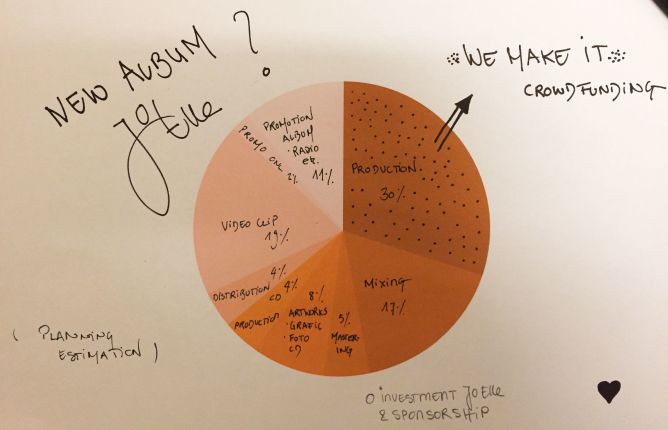 NEW ALBUM ?
JoElle
WE MAKE iT
CROWDFUNDING
PRODUCTION
30%
MiXiNG
17%
5%
MASTER-
iNG
8%
ARTWORKS
· GRAFIC
· FOTO
CD
4%
CD
PRODUCTION
4%
DISTRIBUTION
ViDEO CLiP
19%
PROMO ONE
2%
PROMOTION
ALBUM
· RADIO
etc.
11%
( PLANNING
ESTIMATION )
O iNVESTMENT JoElle
& SPONSORSHiP